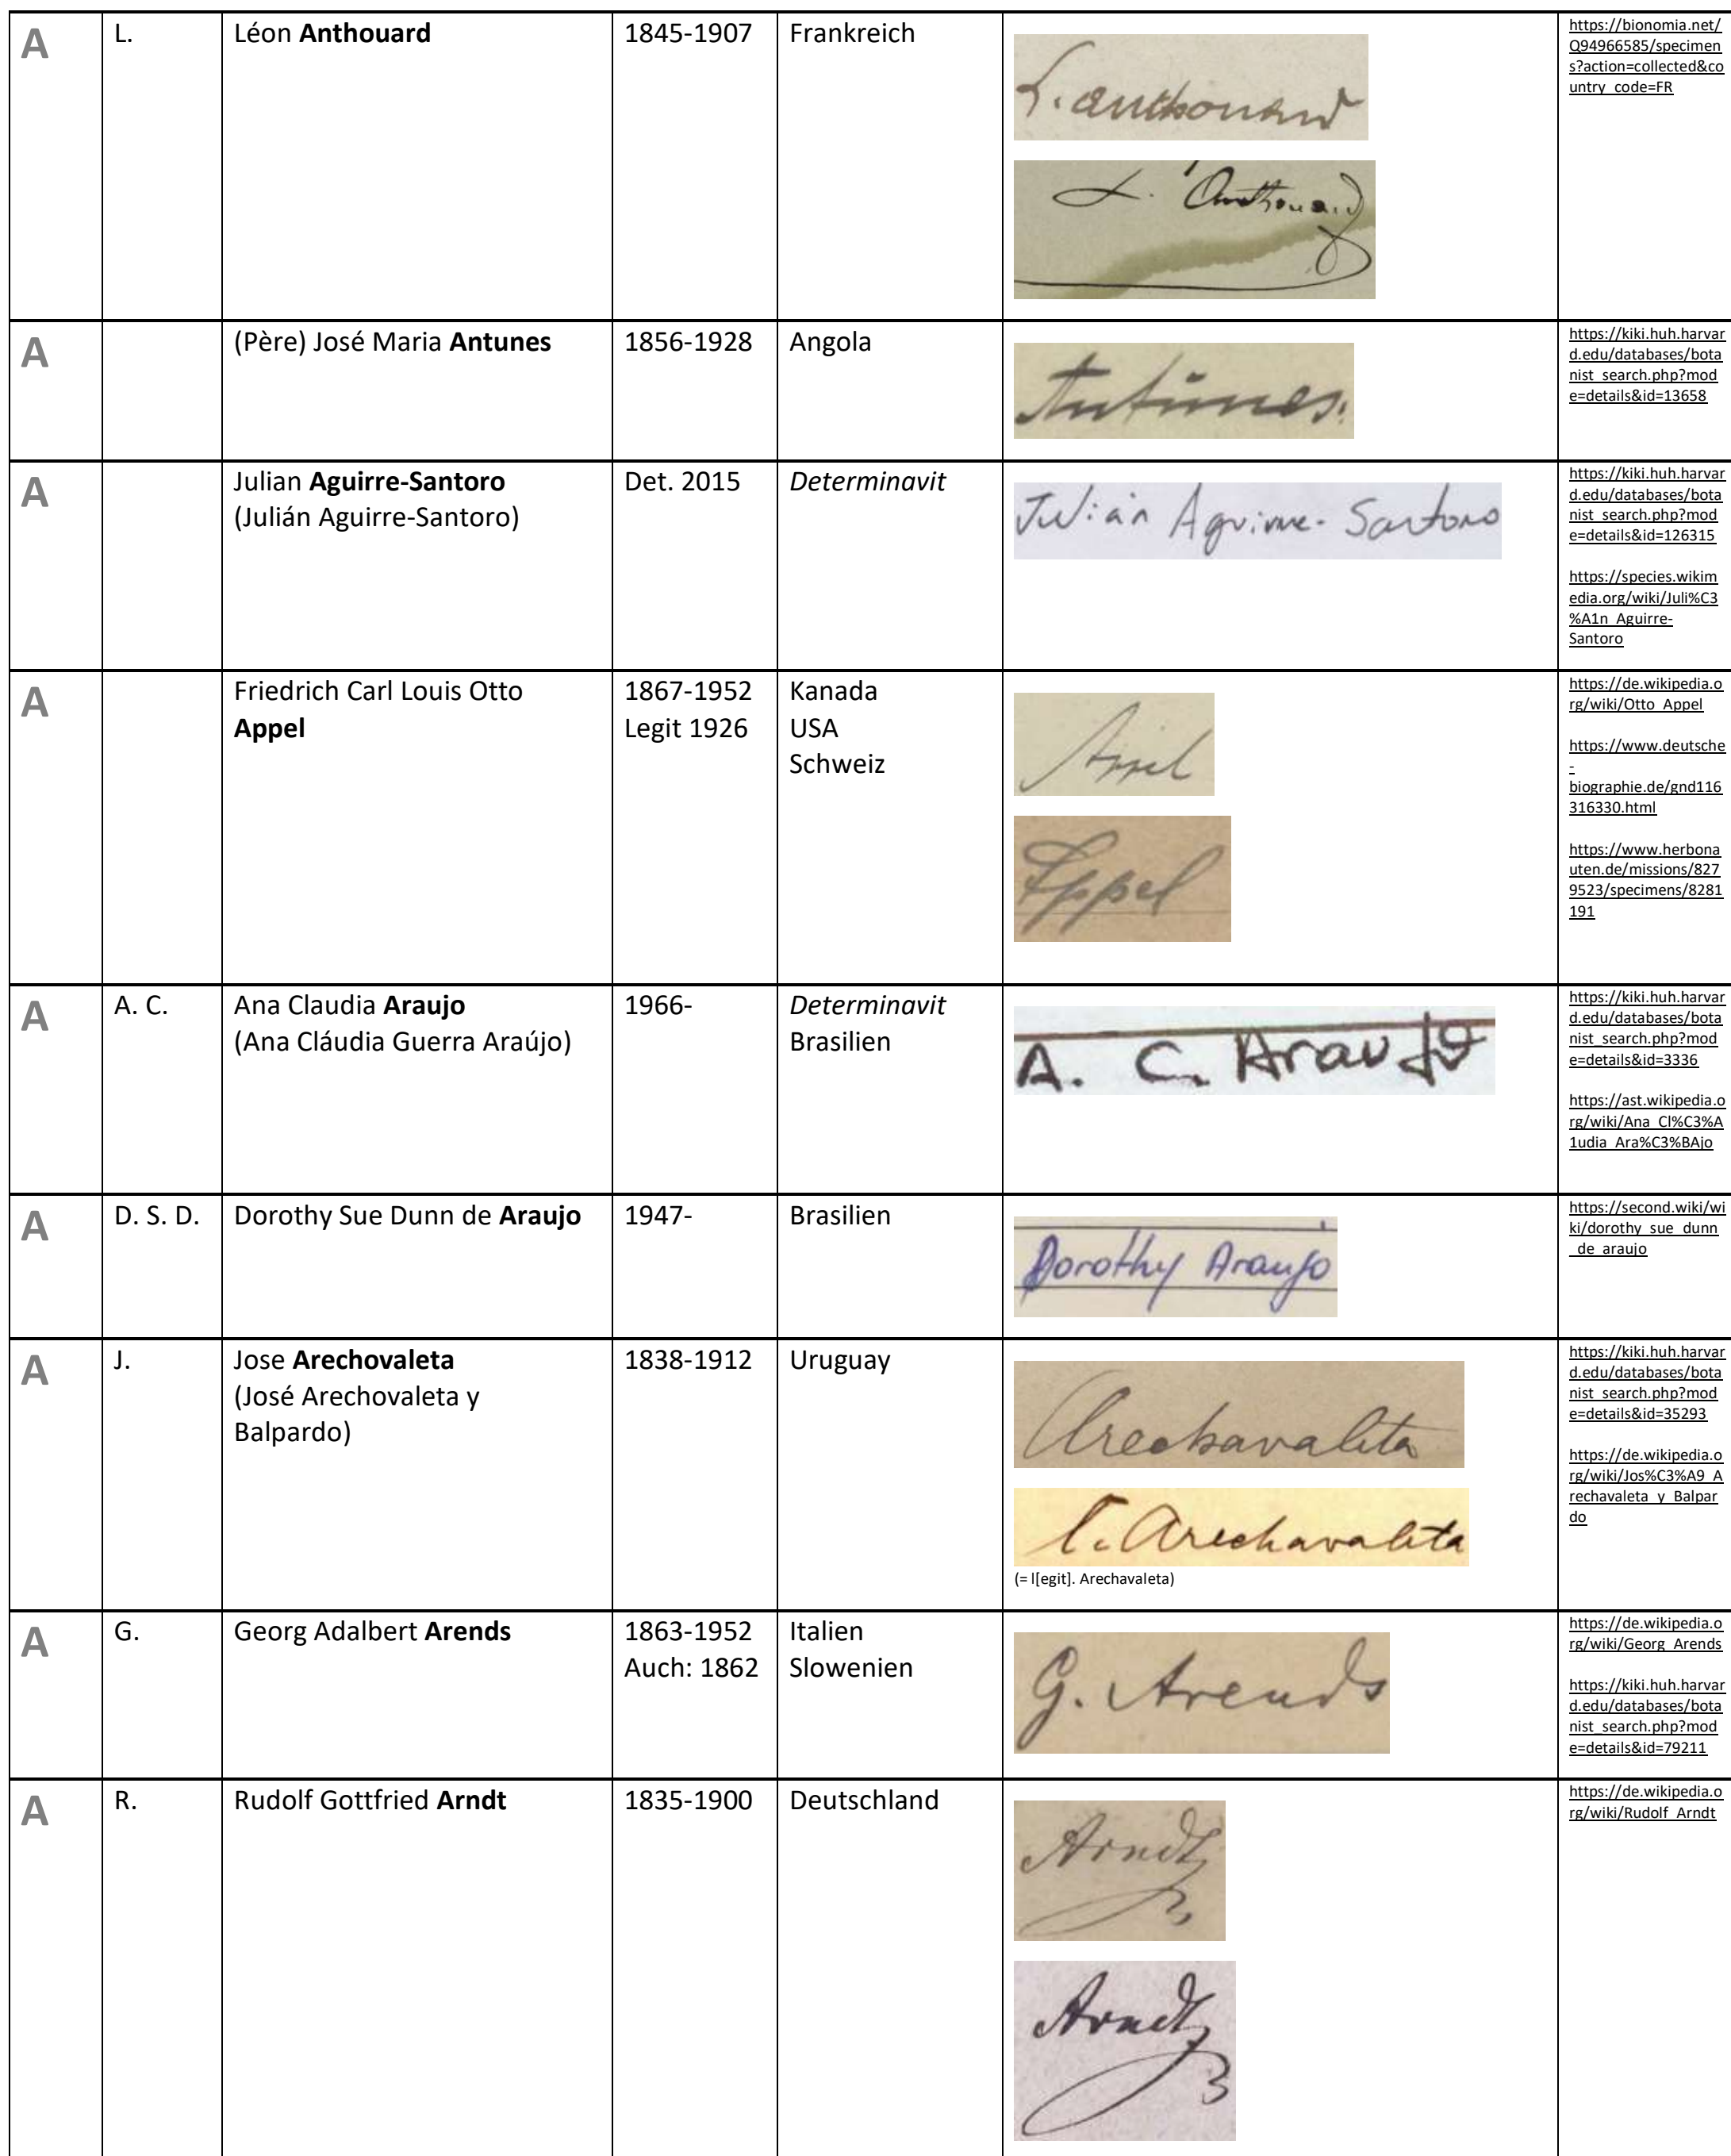 A L. Léon Anthouard 1845-1907 Frankreich
L. anthouard
L. Anthouard
https://bionomia.net/
Q94966585/specimen
s?action=collected&co
untry_code=FR
A (Père) José Maria Antunes 1856-1928 Angola
Antunes.
https://kiki.huh.harvar
d.edu/databases/bota
nist_search.php?mod
e=details&id=13658
A Julian Aguirre-Santoro Det. 2015 Determinavit
(Julián Aguirre-Santoro)
Julián Aguirre-Santoro
https://kiki.huh.harvar
d.edu/databases/bota
nist_search.php?mod
e=details&id=126315
https://species.wikim
edia.org/wiki/Juli%C3
%A1n_Aguirre-
Santoro
A Friedrich Carl Louis Otto 1867-1952 Kanada
Appel Legit 1926 USA
Schweiz
Appel
Appel
https://de.wikipedia.o
rg/wiki/Otto_Appel
https://www.deutsche
-
biographie.de/gnd116
316330.html
https://www.herbona
uten.de/missions/827
9523/specimens/8281
191
A A. C. Ana Claudia Araujo 1966- Determinavit
(Ana Cláudia Guerra Araújo) Brasilien
A. C. Araujo
https://kiki.huh.harvar
d.edu/databases/bota
nist_search.php?mod
e=details&id=3336
https://ast.wikipedia.o
rg/wiki/Ana_Cl%C3%A
1udia_Ara%C3%BAjo
A D. S. D. Dorothy Sue Dunn de Araujo 1947- Brasilien
Dorothy Araujo
https://second.wiki/wi
ki/dorothy_sue_dunn
_de_araujo
A J. Jose Arechovaleta 1838-1912 Uruguay
(José Arechovaleta y
Balpardo)
Arechavaleta
l. Arechavaleta
(= l[egit]. Arechavaleta)
https://kiki.huh.harvar
d.edu/databases/bota
nist_search.php?mod
e=details&id=35293
https://de.wikipedia.o
rg/wiki/Jos%C3%A9_A
rechavaleta_y_Balpar
do
A G. Georg Adalbert Arends 1863-1952 Italien
Auch: 1862 Slowenien
G. Arends
https://de.wikipedia.o
rg/wiki/Georg_Arends
https://kiki.huh.harvar
d.edu/databases/bota
nist_search.php?mod
e=details&id=79211
A R. Rudolf Gottfried Arndt 1835-1900 Deutschland
Arndt
Arndt
https://de.wikipedia.o
rg/wiki/Rudolf_Arndt